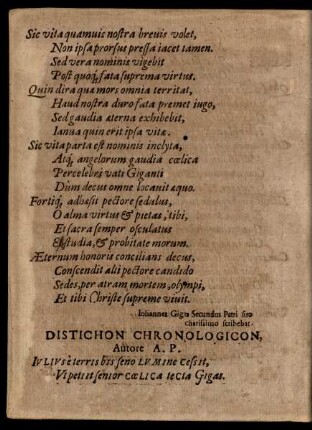 Sic vita quamuis nostra breuis volet,
Non ipsa prorsus pressa iacet tamen.
Sed vera nominis vigebit
Post quoq, fata suprema virtus.
Quin dira quamors omnia territat,
Haud nostra duro fata premet iugo,
Sed gaudia æterna exhibebit,
Ianua quin erit ipsa vitæ.
Sic vita parta est nominis inclyta,
Atq, angelorum gaudia cœlica
Percelebri vati Giganti
Dum decus omne locauit æquo.
Fortiq, adhæsit pectore sedulus,
O alma virtus & pietas, tibi,
Et sacra semper osculatus
Et studia, & probitate morum.
Æternum honoris concilians decus,
Conscendit alti pectore candido
Sedes, per atram mortem, olympi,
Et tibi Christe supreme viuit.
Iohannes Gigas Secundus Patri suo
charissimo scribebat.
DISTICHON CHRONOLOGICON,
Autore A. P.
IVLIVS è terris bis seno LVMine CessIt,
VI petiit senior CœLICa teCta Gigas.